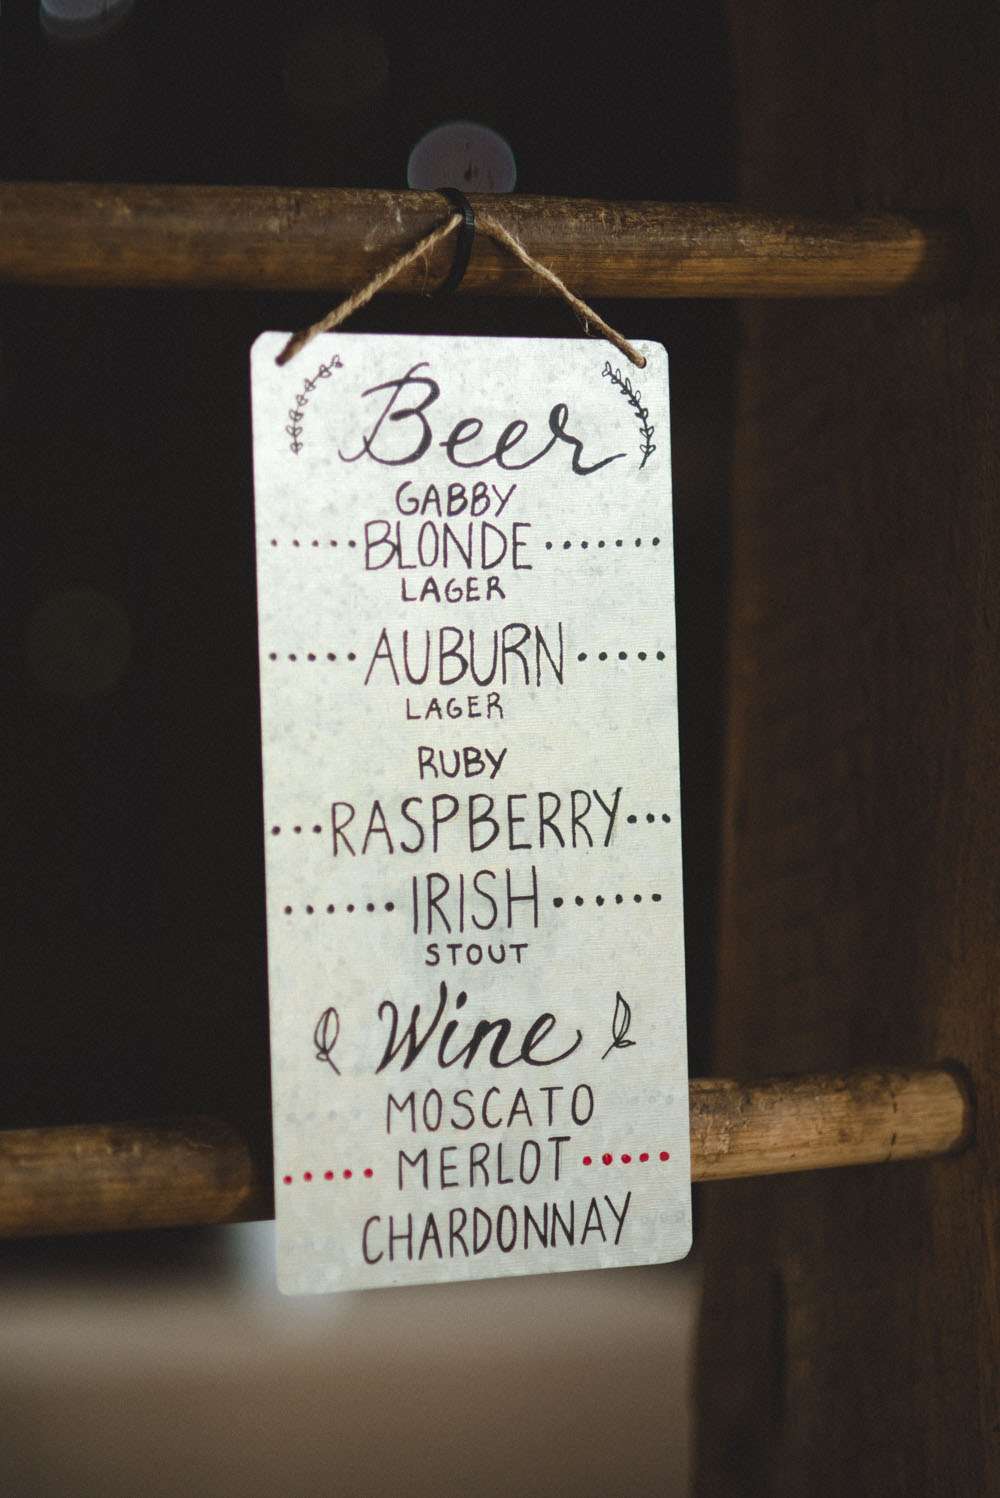 Beer
GABBY
BLONDE
LAGER
AUBURN
LAGER
RUBY
RASPBERRY
IRISH
STOUT
Wine
MOSCATO
MERLOT
CHARDONNAY